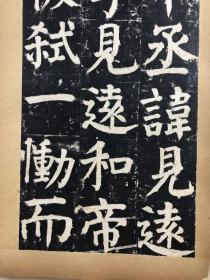 丞諱見遠
見遠和帝
弑一慟而